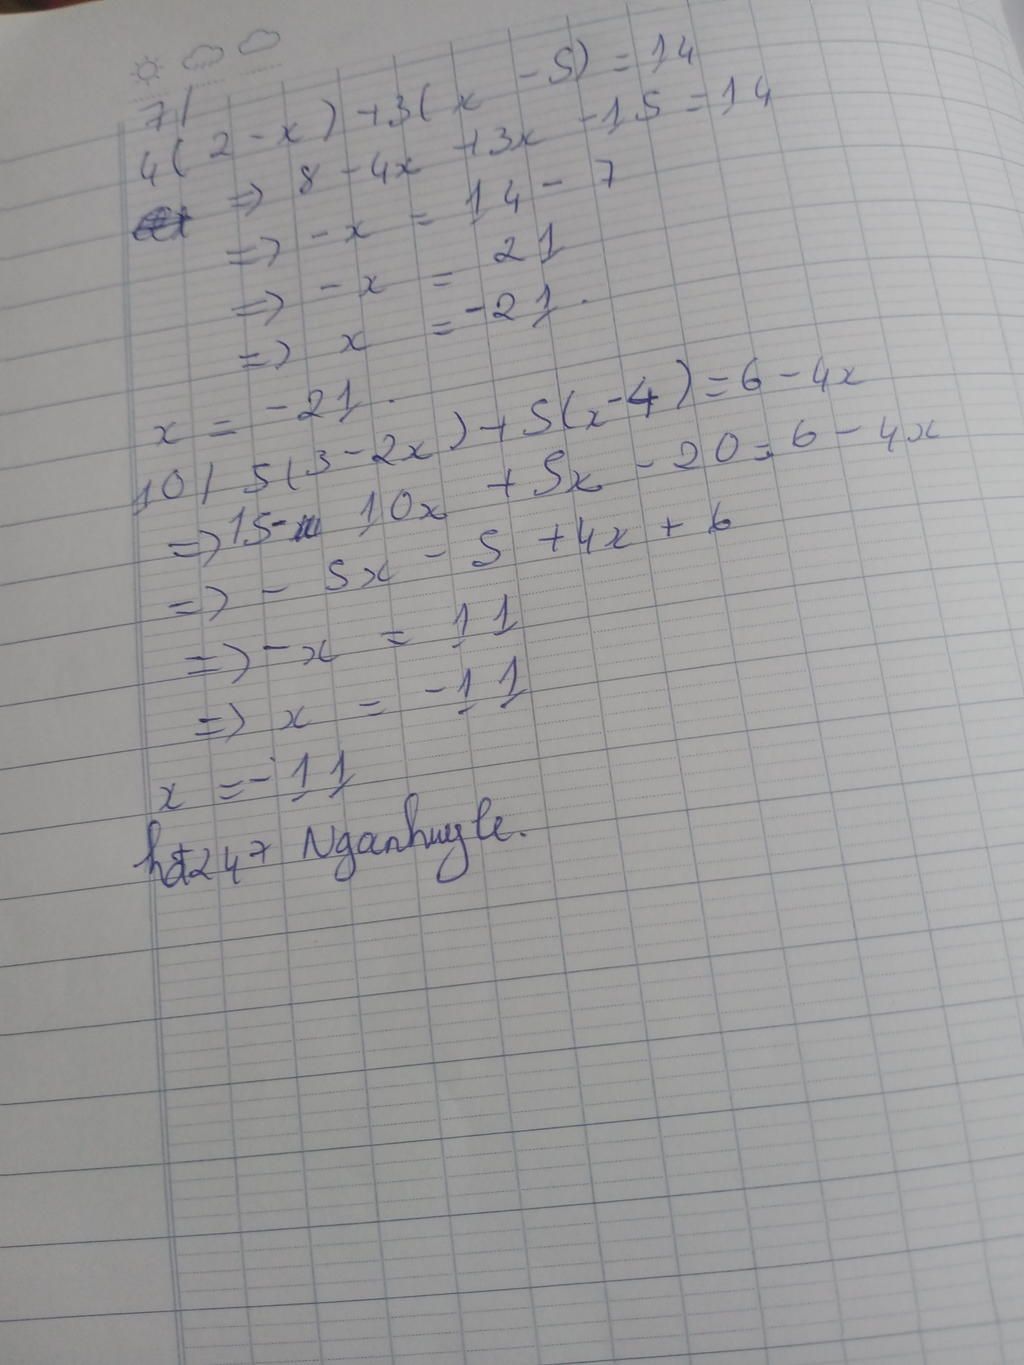 7/
4(2-x)+3(x-5)=14
=> 8-4x+3x-15=14
=> -x=14-7
=> -x=21
=> x=-21.
x=-21.
10/ 5(3-2x)+5(x-4)=6-4x
=> 15-10x+5x-20=6-4x
=> -5x-5+4x+6
=> -x=11
=> x=-11
x=-11
hd247 Nganhuyle.